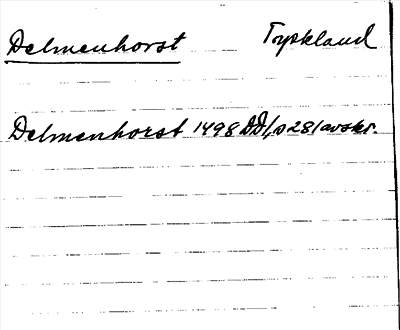 Delmenhorst Tyskland
Delmenhorst 1498 DD1, s 281 avskr.